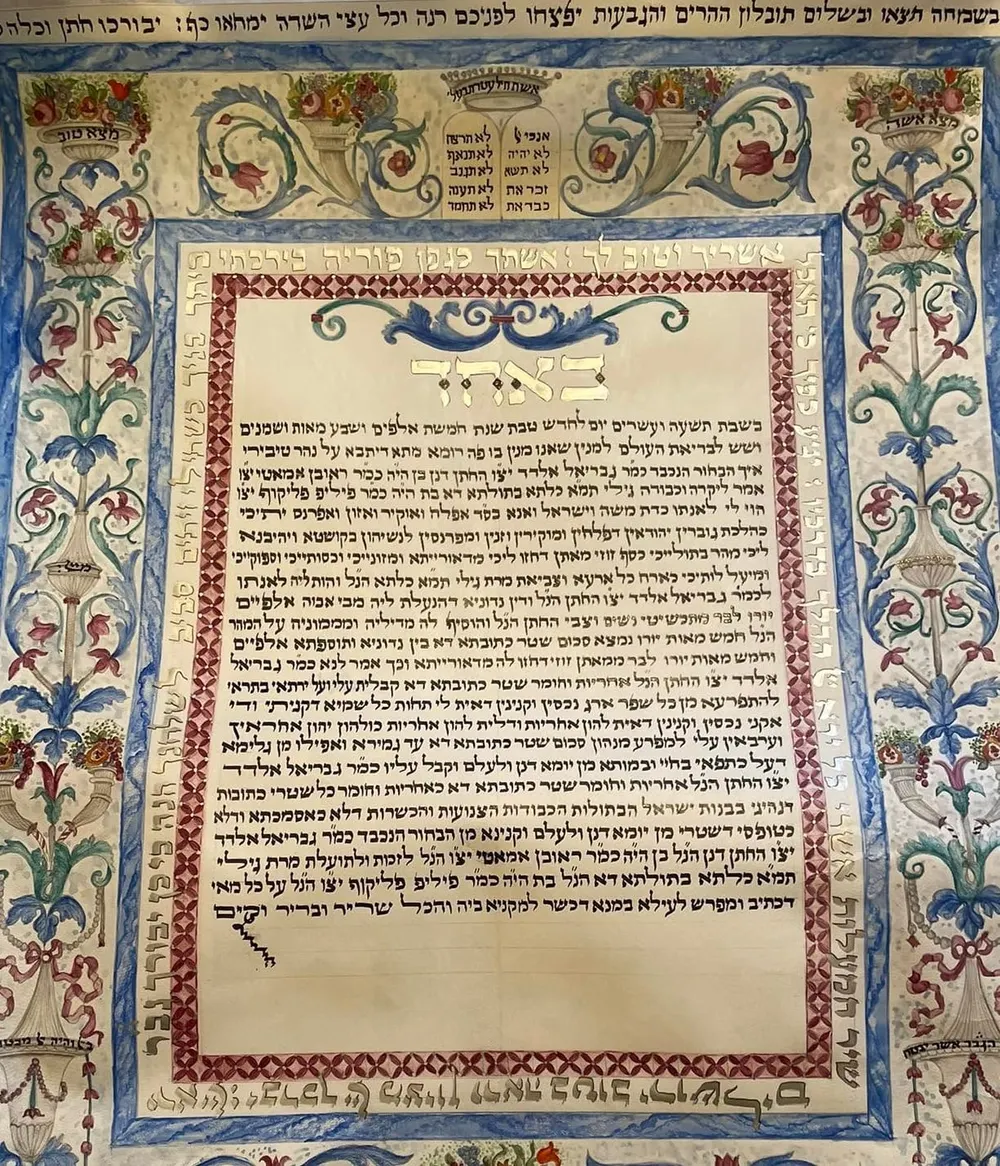 בשמחה תצאו ובשלום תובלון ההרים והגבעות יפצחו לפניכם רנה וכל עצי השדה ימחאו כף: יבורכו חתן וכלה
אשת חיל עטרת בעלי
מצא אשה
מצא טוב
אנכי יי
לא יהיה
לא תשא
זכר את
כבד את
לא תרצח
לא תנאף
לא תגנב
לא תענה
לא תחמד
שיר המעלות אשרי כל ירא יי ההלך בדרכיו יגיע כפיך כי תאכל
אשריך וטוב לך: אשתך כגפן פוריה בירכתי
ביתך בניך כשתילי זיתים סביב לשלחנך הנה כי כן יבורך גבר
ירא יי: יברכך יי מציון וראה בטוב ירושלים
באחד
בשבת תשעה ועשרים יום לחדש טבת שנת חמשת אלפים ושבע מאות ושמנים
ושש לבריאת העולם למנין שאנו מנין בו פה רומא מתא דיתבא על נהר טיבירי
איך הבחור הנכבד כמ״ר גבריאל אלדד יצ״ו החתן דנן בן היה כמ״ר ראובן אמאטי יצ״ו
אמר ליקרה וכבודה גילי תמ״א כלתא בתולתא דא בת היה כמר פיליפ פליקוף יצ״ו
הוי לי לאנתו כדת משה וישראל ואנא בס״ד אפלח ואוקיר ואזון ואפרנס יתיכי
כהלכת גוברין יהודאין דפלחין ומוקירין וזנין ומפרנסין לנשיהון בקושטא ויהיבנא
ליכי מהר בתולייכי כסף זוזי מאתן דחזו ליכי מדאורייתא ומזונייכי וכסותייכי וספוקייכי
ומיעל לותיכי כארח כל ארעא וצביאת מרת גילי תמ״א כלתא הנ״ל והות ליה לאנתו
לכמ״ר גבריאל אלדד יצ״ו החתן הנ״ל ודין נדוניא דהנעלת ליה מבי אבוה אלפיים
יורו לבר מתכשיטי נשים וצבי החתן הנ״ל והוסיף לה מדיליה ומממוניה על המהר
הנ״ל חמש מאות יורו נמצא סכום שטר כתובתא דא בין נדוניא ותוספתא אלפיים
וחמש מאות יורו לבר ממאתן זוזי דחזו לה מדאורייתא וכך אמר לנא כמ״ר גבריאל
אלדד יצ״ו החתן הנ״ל אחריות וחומר שטר כתובתא דא קבלית עלי ועל ירתאי בתראי
להתפרעא מן כל שפר ארג נכסין וקנינין דאית לי תחות כל שמיא דקניתי ודי
אקני נכסין וקנינין דאית להון אחריות ודלית להון אחריות כולהון יהון אחראין
וערבאין עלי למפרע מנהון סכום שטר כתובתא דא עד גמירא ואפילו מן גלימא
דעל כתפאי בחיי ובמותא מן יומא דנן ולעלם וקבל עליו כמ״ר גבריאל אלדד
יצ״ו החתן הנ״ל אחריות וחומר שטר כתובתא דא כאחריות וחומר כל שטרי כתובות
דנהיגי בבנות ישראל הבתולות הכבודות הצנועות והכשרות דלא כאסמכתא ודלא
כטופסי דשטרי מן יומא דנן ולעלם וקנינא מן הבחור הנכבד כמ״ר גבריאל אלדד
יצ״ו החתן דנן הנ״ל בן היה כמ״ר ראובן אמאטי יצ״ו הנ״ל לזכות ולתועלת מרת גילי
תמ״א כלתא בתולתא דא הנ״ל בת היה כמ״ר פיליפ פליקוף יצ״ו הנ״ל על כל מאי
דכתיב ומפרש לעילא במנא דכשר למקניא ביה והכל שריר ובריר וקים